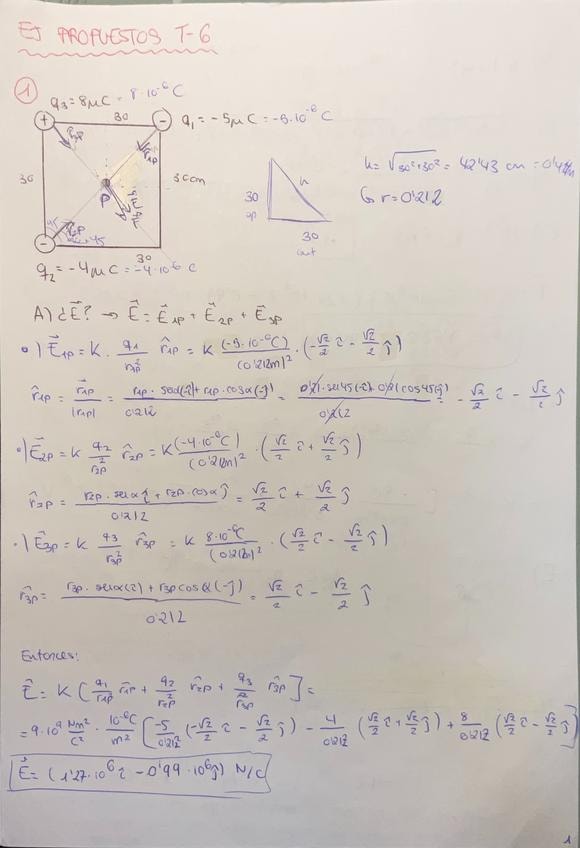 EJ PROPUESTOS T-6
① q₃ = 8μC = 8·10⁻⁶ C
30 q₁ = -5μC = -5·10⁻⁶ C
+ -
r₃p r₁p
30 30cm
P
r₂p
45
-
30
q₂ = -4μC = -4·10⁻⁶ C
30 h
30
h = √30²+30² = 42'43 cm =
↳ r = 0'212
A) ¿E⃗? → E⃗ = E⃗₁p + E⃗₂p + E⃗₃p
•) E⃗₁p = K · q₁/r₁p² r̂₁p = K (-5·10⁻⁶C)/(0'212m)² · (-√2/2 î - √2/2 ĵ)
r̂₁p = r⃗₁p/|r₁p| = r₁p · senα(-î) + r₁p · cosα(-ĵ)/0'212 = 0'21 · sen45(-î) + 0'21 cos45(-ĵ)/0'212 = -√2/2 î - √2/2 ĵ
•) E⃗₂p = K q₂/r₂p² r̂₂p = K (-4·10⁻⁶C)/(0'212m)² · (√2/2 î + √2/2 ĵ)
r̂₂p = r₂p · senα î + r₂p · cosα ĵ/0'212 = √2/2 î + √2/2 ĵ
•) E⃗₃p = K q₃/r₃p² r̂₃p = K 8·10⁻⁶C/(0'212m)² · (√2/2 î - √2/2 ĵ)
r̂₃p = r₃p · senα(î) + r₃p cosα(-ĵ)/0'212 = √2/2 î - √2/2 ĵ
Entonces:
E⃗ = K [q₁/r₁p² r̂₁p + q₂/r₂p² r̂₂p + q₃/r₃p² r̂₃p] =
= 9·10⁹ Nm²/C² · 10⁻⁶C/m² [-5/0'212 (-√2/2 î - √2/2 ĵ) - 4/0'212 (√2/2 î + √2/2 ĵ) + 8/0'212 (√2/2 î - √2/2 ĵ)]
E⃗ = (1'27·10⁶ î - 0'99·10⁶ ĵ) N/C
1